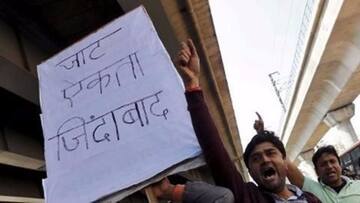 जाट
एकता
जिंदाबाद